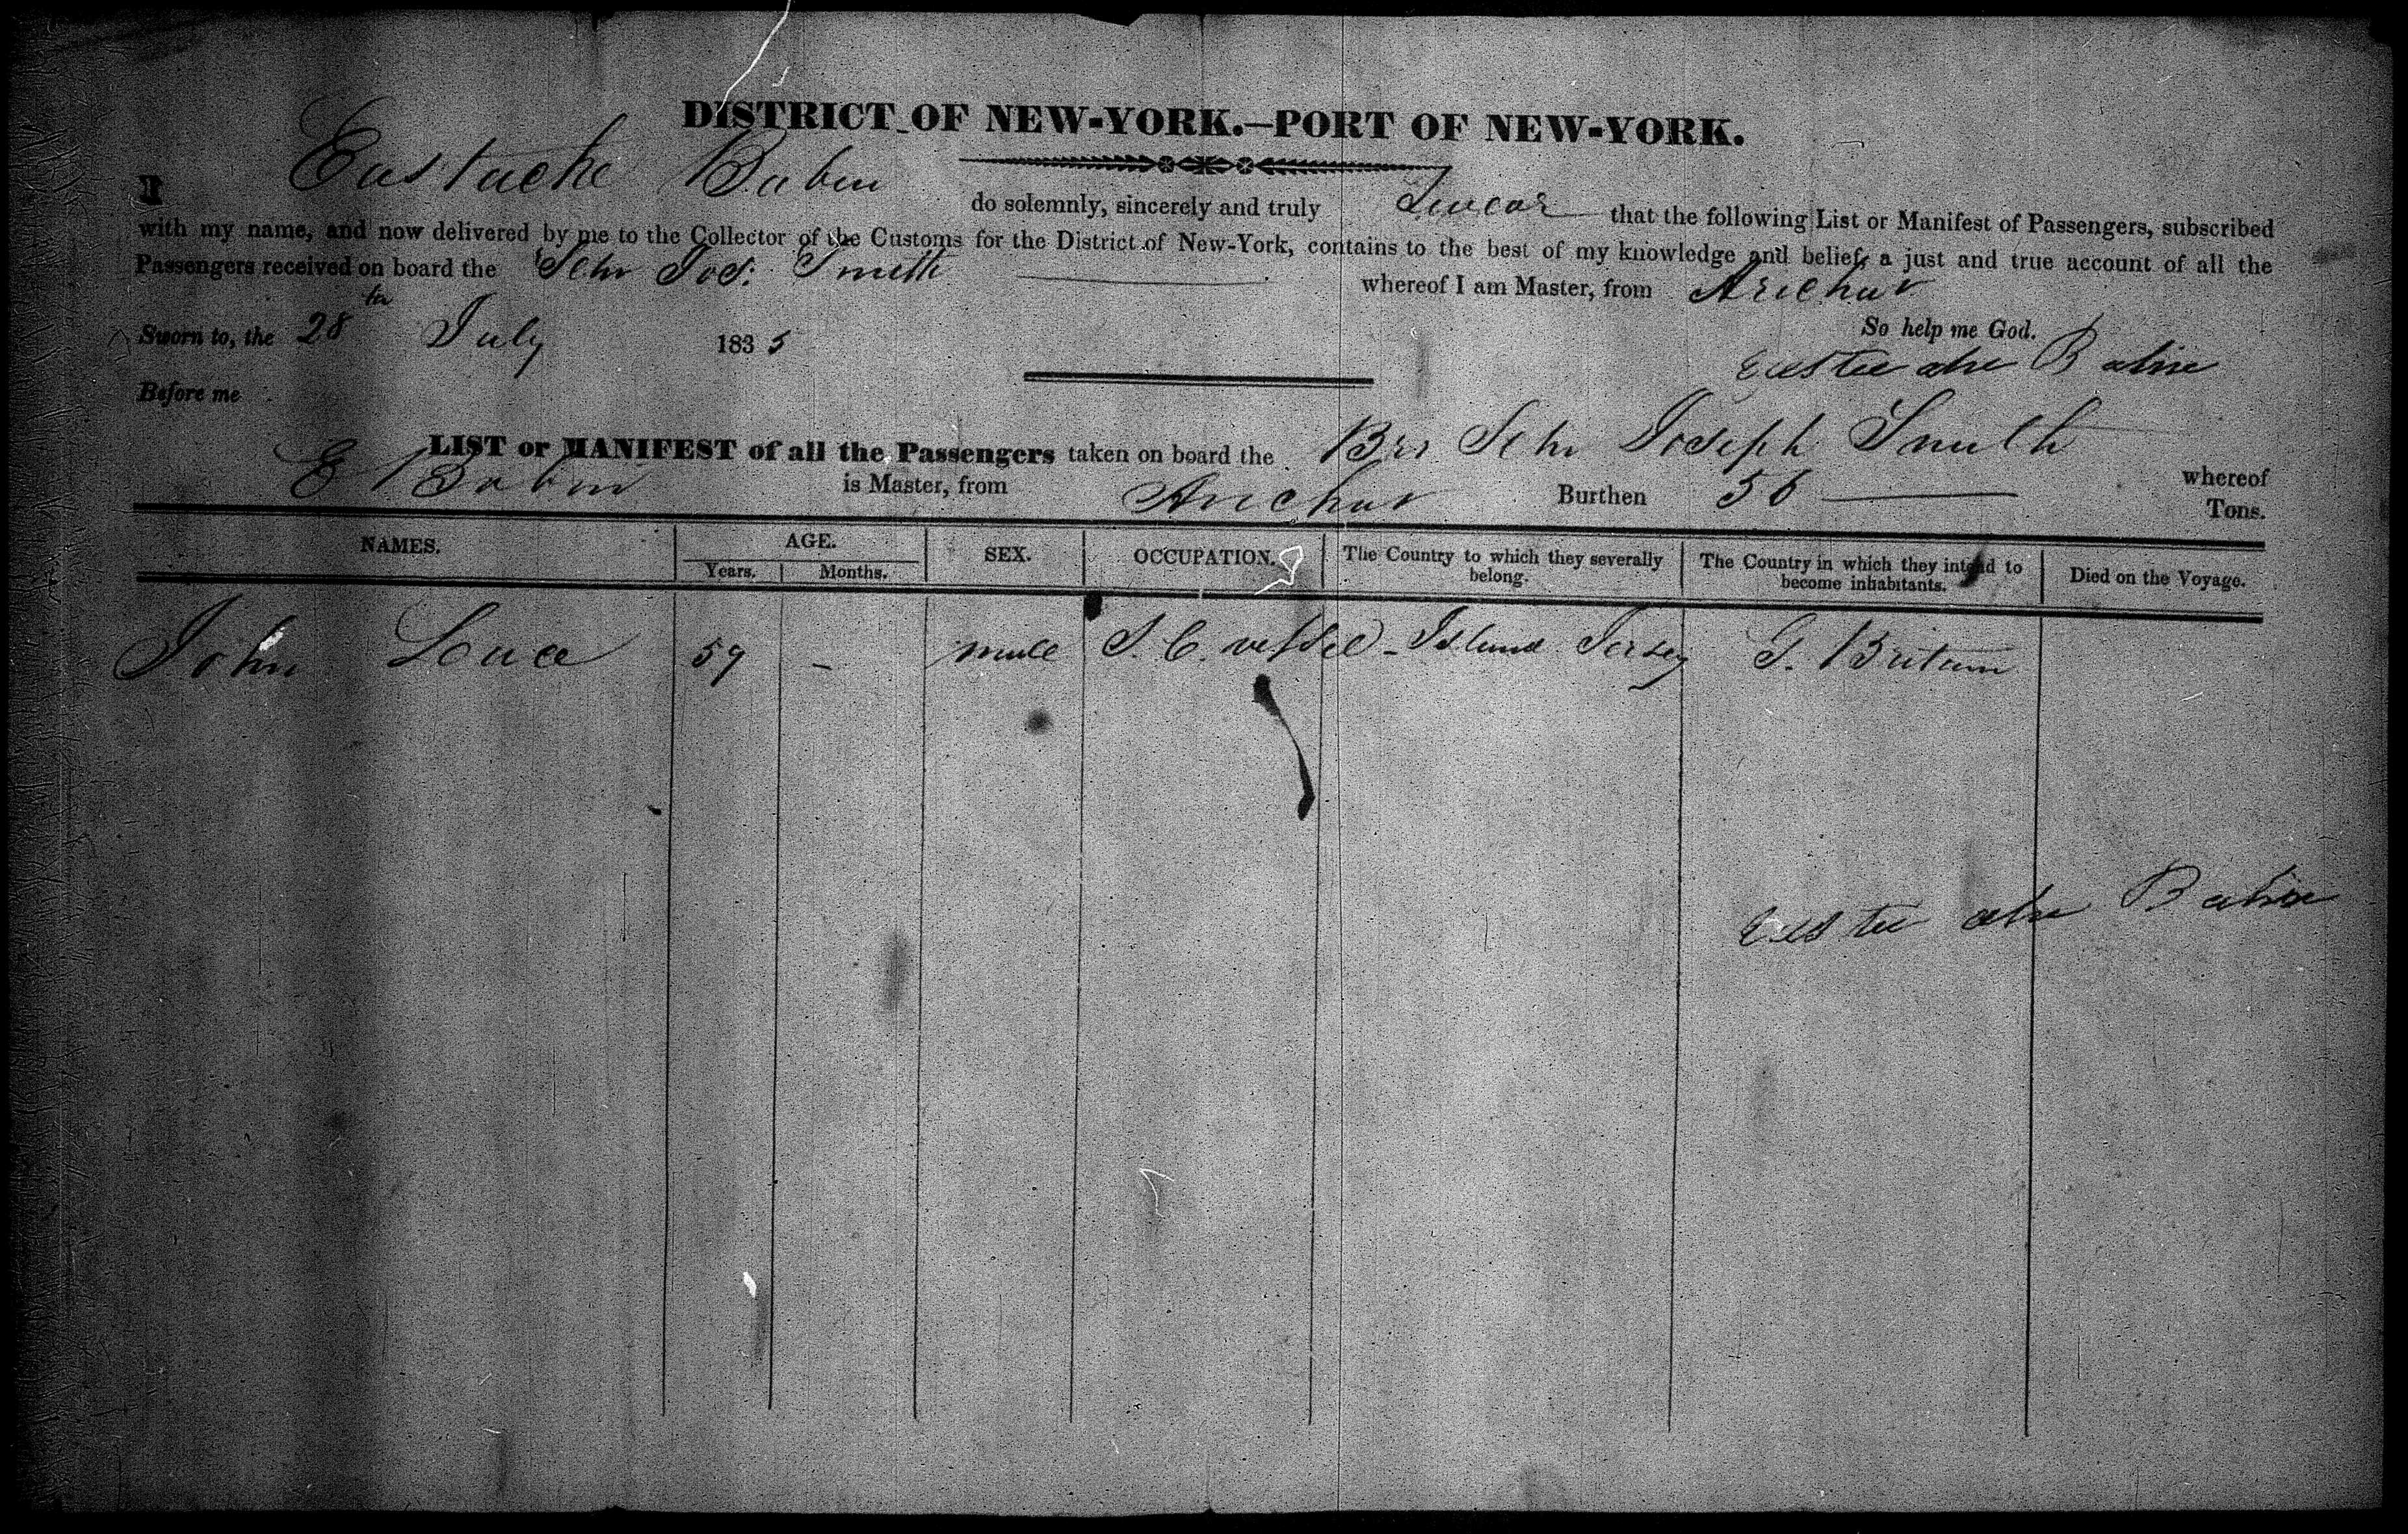 DISTRICT OF NEW-YORK.—PORT OF NEW-YORK.
I Eustache Babin do solemnly, sincerely and truly Swear that the following List or Manifest of Passengers, subscribed
with my name, and now delivered by me to the Collector of the Customs for the District of New-York, contains to the best of my knowledge and belief, a just and true account of all the
Passengers received on board the Schr Jos: Smith whereof I am Master, from Arichat
So help me God.
Sworn to, the 28th July 1835
Eustache Babin
Before me
LIST or MANIFEST of all the Passengers taken on board the Br Schr Joseph Smith whereof
E Babin is Master, from Arichat Burthen 56 Tons.
NAMES. AGE. SEX. OCCUPATION. The Country to which they severally belong. The Country in which they intend to become inhabitants. Died on the Voyage.
Years. Months.
John 59 - male vessel - Island Jersey G. Britain
Eustache Babin